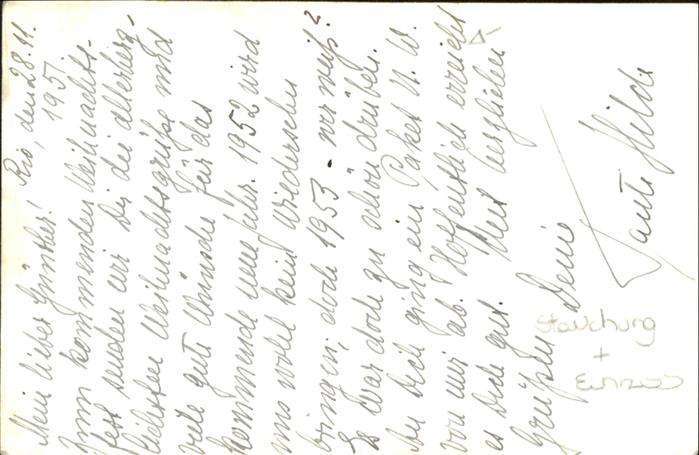 Rio, den 28.11.
1951
Mein lieber Günther!
Zum kommenden Weihnachts-
fest senden wir Dir die allerherz-
lichsten Weihnachtsgrüße und
viele gute Wünsche für das
kommende neue Jahr. 1952 wird
uns wohl kein Wiedersehen
bringen, doch 1953 - wer weiß?
Es war doch zu schön drüben.
An Dich ging ein Paket N.W.
von mir ab. Hoffentlich erreicht
es Dich gut. Mit herzlichen
Grüßen Deine
Tante Hilde
Stauchung
+